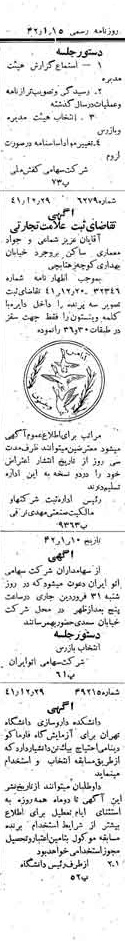 روزنامه رسمی ۴۲ر۱ر۱۵
دستور جلسه
۱ - استماع گزارش هیئت
مدیره
۲ - رسیدگی و تصویب ترازنامه
و عملیات در سال گذشته
۳ - انتخاب هیئت مدیره و
بازرس
۴ـ تغییر مواد اساسنامه در صورت
لزوم
شرکت سهامی کفش ملی
پ۷۳
شماره ۶۲۷۹ ۴۱ر۱۲ر۲۹
آگهی
تقاضای ثبت علامت تجارتی
آقایان عزیز شماعی و جواد
معماری ساکن بروجرد خیابان
بهداری کوچه
بموجب اظهار نامه شماره
۳۲۳۴۶ - ۴۱ر۱۲ر۲۰
تصویر سه پرنده را داخل دایره با
کلمه وینستون را فقط جهت سقز
در طبقات ۳۰و۳۶ را نموده
مراتب برای اطلاع عموم آگهی
میشود معترضین میتوانند ظرف مدت
سی روز از تاریخ انتشار اعتراض
خود را در دو نسخه به این اداره
تسلیم دارند
رئیس اداره ثبت شرکتها و
مالکیت صنعتی مهدی نراقی
پ۹۳۶۳
تاریخ ۴۲ر۱ر۱۰
آگهی
از سهامداران شرکت سهامی
اتو ایران دعوت میشود که در روز
شنبه ۳۱ فروردین جاری ساعت
پنج بعدازظهر در محل شرکت
خیابان سعدی حضور بهمرسانند
دستور جلسه
انتخاب بازرس
شرکت سهامی اتو ایران
پ۶۱
شماره ۳۹۲۱۵ ۴۱ر۱۲ر۲۹
آگهی
دانشکده داروسازی دانشگاه
تهران برای آزمایشگاه فارماکو
دینامی احتیاج بیک نفر دانشیار دارد که
از طریق مسابقه انتخاب و استخدام
مینماید
داوطلبان میتوانند از تاریخ نشر
این آگهی تا دو ماه همه روزه به
استثنای ایام تعطیل برای اطلاع
بیشتر از شرایط استخدام
مسابقه موکول بتامین اعتبار و تحصیل
مجوز استخدام خواهد بود
۲-۱ از طرف رئیس دانشگاه
پ۵۲